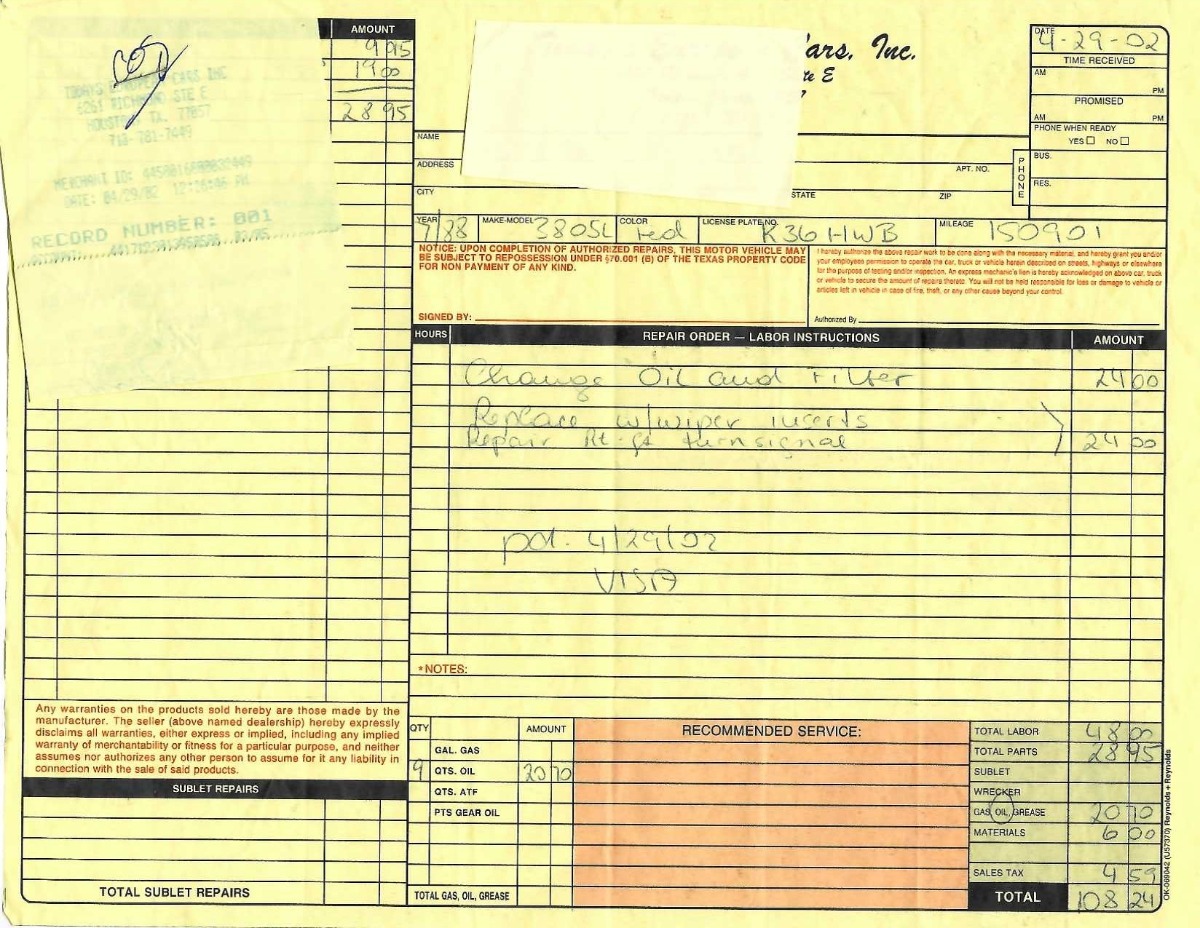 AMOUNT
9 95
19 00
28 95
TODAYS EUROPEAN CARS INC
6261 RICHMOND STE E
HOUSTON, TX. 77057
713-781-7449
MERCHANT ID:
DATE: 04/29/02 12:16:46 PM
RECORD NUMBER: 001
Cars, Inc.
te E
DATE 4-29-02
TIME RECEIVED
AM PM
PROMISED
AM PM
PHONE WHEN READY
YES NO
NAME
ADDRESS APT. NO.
CITY STATE ZIP
PHONE
BUS.
RES.
YEAR 7/83 MAKE-MODEL 380SL COLOR red LICENSE PLATE NO. K36 HWB MILEAGE 150901
NOTICE: UPON COMPLETION OF AUTHORIZED REPAIRS, THIS MOTOR VEHICLE MAY
BE SUBJECT TO REPOSSESSION UNDER §70.001 (B) OF THE TEXAS PROPERTY CODE
FOR NON PAYMENT OF ANY KIND.
SIGNED BY:
I hereby authorize the above repair work to be done along with the necessary material, and hereby grant you and/or
your employees permission to operate the car, truck or vehicle herein described on streets, highways or elsewhere
for the purpose of testing and/or inspection. An express mechanic's lien is hereby acknowledged on above car, truck
or vehicle to secure the amount of repairs thereto. You will not be held responsible for loss or damage to vehicle or
articles left in vehicle in case of fire, theft, or any other cause beyond your control.
Authorized By
HOURS REPAIR ORDER — LABOR INSTRUCTIONS AMOUNT
Change Oil and Filter 24 00
Replace w/wiper inserts
Repair Rt-ft turnsignal 24 00
pd. 4/29/02
VISA
*NOTES:
Any warranties on the products sold hereby are those made by the
manufacturer. The seller (above named dealership) hereby expressly
disclaims all warranties, either express or implied, including any implied
warranty of merchantability or fitness for a particular purpose, and neither
assumes nor authorizes any other person to assume for it any liability in
connection with the sale of said products.
SUBLET REPAIRS
TOTAL SUBLET REPAIRS
QTY AMOUNT
GAL. GAS
9 QTS. OIL 20 70
QTS. ATF
PTS GEAR OIL
TOTAL GAS, OIL, GREASE
RECOMMENDED SERVICE:
TOTAL LABOR 48 00
TOTAL PARTS 28 95
SUBLET
WRECKER
GAS, OIL, GREASE 20 70
MATERIALS 6 00
SALES TAX 4 59
TOTAL 108 24
OK-069042 (U57370) Reynolds + Reynolds